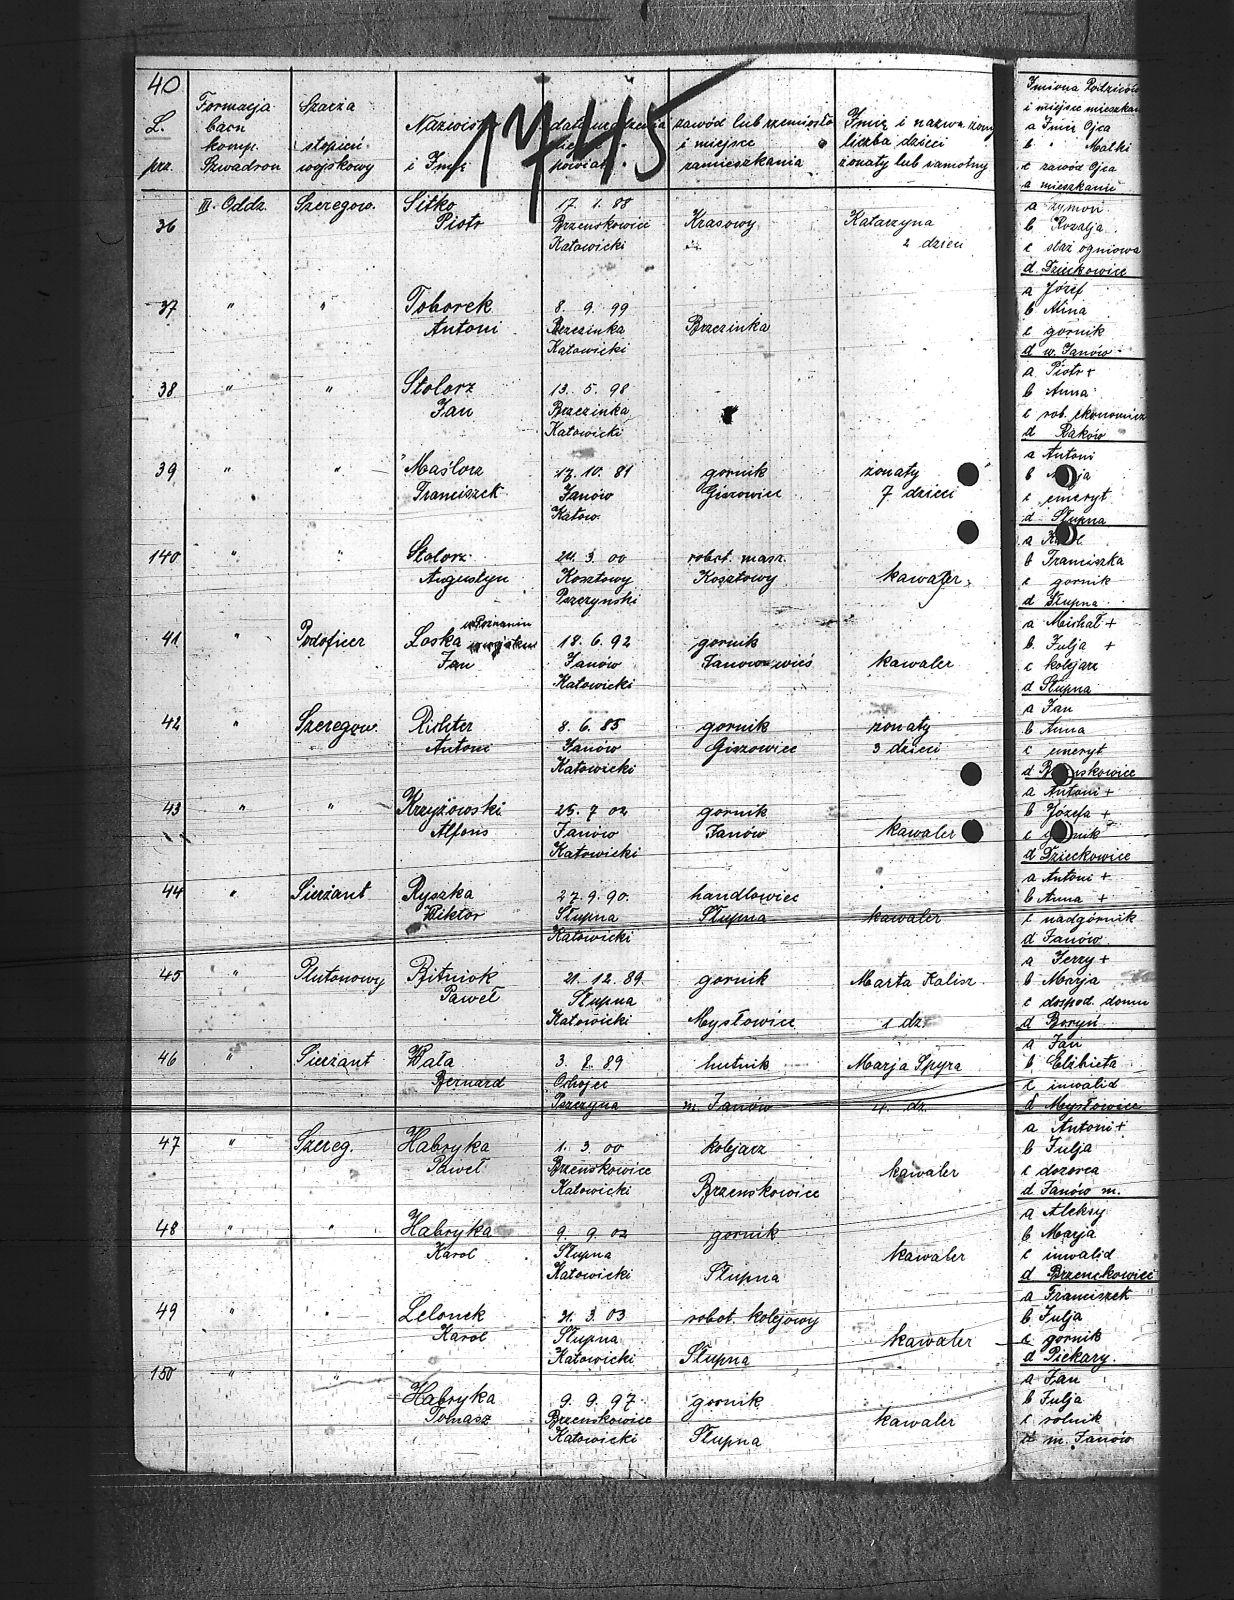 40
1745
L. prz.
Formacja baon komp. Szwadron
Szarża stopień wojskowy
Nazwisko i Imię
data urodzenia powiat
zawód lub rzemiosło i miejsce zamieszkania
Imię i nazw. żony liczba dzieci żonaty lub samotny
Imiona Rodziców
i miejsce mieszkan
a Imię Ojca
b " Matki
c zawód Ojca
a mieszkanie
36 III. Oddz. Szeregow. Sitko 17. 1. 88
Piotr Brzenskowice Krasowy Katarzyna
Katowicki 2 dzieci
37 " " Toborek 8. 9. 99
Antoni Brzezinka Brzezinka
Katowicki
38 " " Stolorz 13. 5. 98
Jan Brzezinka
Katowicki
39 " " Maślorz 17. 10. 81 gornik żonaty
Franciszek Janów Giszowiec 7 dzieci
Katow.
140 " " Stolorz 24. 3. 00 robot. masz.
Augustyn Kosztowy Kosztowy kawaler
Pszczynski
41 " Podoficer Loska w Poznaniu 18. 6. 92 gornik
Jan Janów Janow-wieś kawaler
Katowicki
42 " Szeregow. Richter 8. 6. 85 gornik żonaty
Antoni Janów Giszowiec 3 dzieci
Katowicki
43 " " Krzyżowski 25. 7 02 gornik
Alfons Janów Janów kawaler
Katowicki
44 " Sierżant Ryszka 27. 9. 90. handlowiec
Wiktor Słupna Słupna kawaler
Katowicki
45 " Plutonowy Bitniok 21. 12. 89 gornik Marta Kalisz
Paweł Słupna
Katowicki Mysłowice 1 dz.
46 " Sierżant Bała 3. 8. 89 hutnik Marja Spyra
Bernard Ochojec
Pszczyna m. Janów 4. dz.
47 " Szereg. Habryka 1. 3. 00 kolejarz
Paweł Brzenskowice kawaler
Katowicki Brzenskowice
48 " " Habryka 9. 9. 02 gornik
Karol Słupna kawaler
Katowicki Słupna
49 " " Lelonek 21. 3. 03 robot. kolejowy
Karol Słupna kawaler
Katowicki Słupna
150 " "
Habryka 9. 9. 97 gornik
Tomasz Brzenskowice kawaler
Katowicki Słupna
a zymon
b Rozalja
c staż ogniowa
d. Dzieckowice
a Józef
b Alina
c gornik
d w. Janów
a Piotr +
b Anna
c rob.
d Raków
a Antoni
b
c emeryt
d. Słupna
a
b Franciszka
c gornik
d Słupna
a Michał +
b. Julja +
c kolejarz
d Słupna
a Jan
b Anna
c emeryt
d
a Antoni +
b Józefa +
c
d Dzieckowice
a Antoni +
b Anna +
c nadgórnik
d Janów
a Jerzy +
b Marja
c dospod. domu
d Boryń
a Jan
b Elżbieta
c inwalid
d Mysłowice
a Antoni +
b Julja
c dozorca
d Janów m.
a Aleksy
b Marja
c inwalid
d Brzenckowice
a Franciszek
b Julja
c gornik
d Piekary.
a Jan
b Julja
c rolnik
d m. Janów